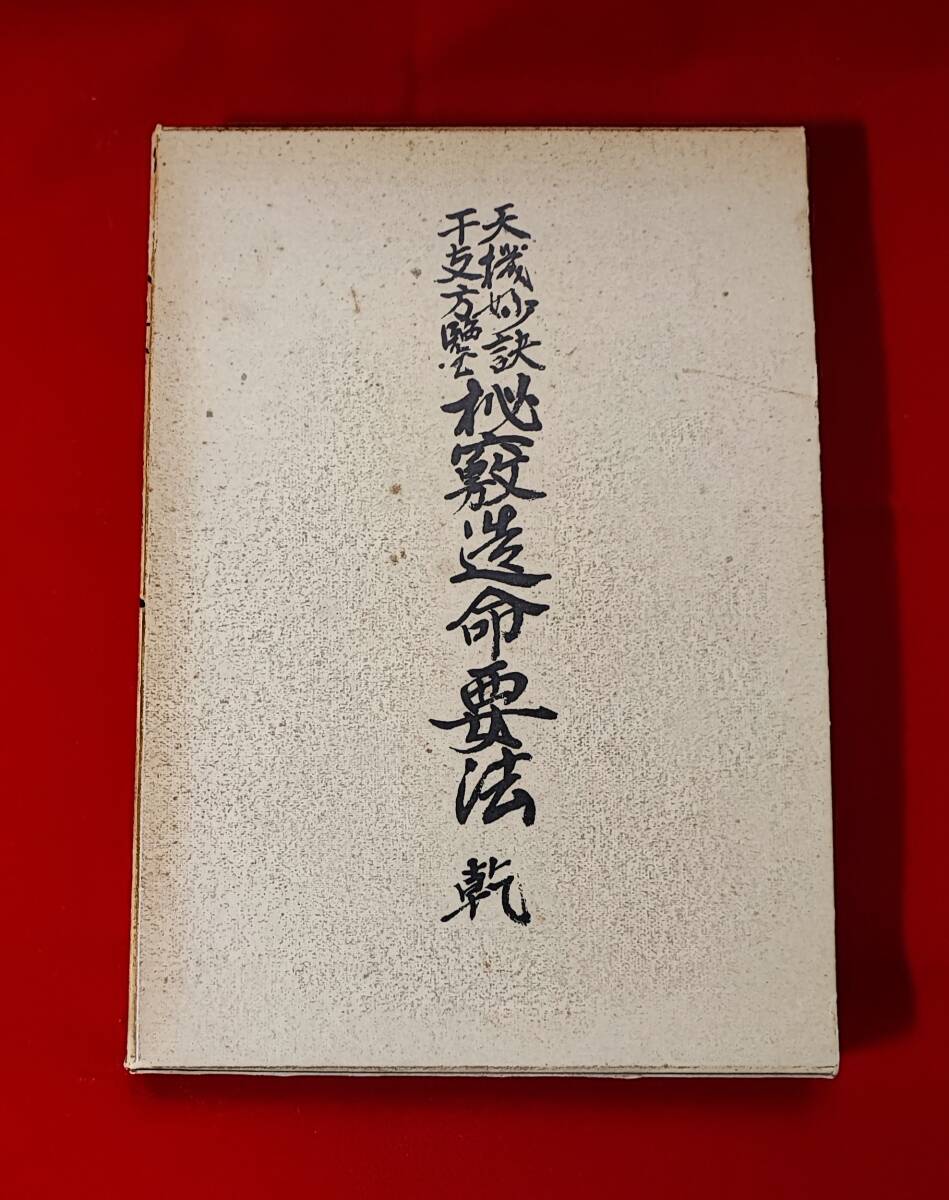 天機妙訣
干支方鑒
秘竅造命要法 乾